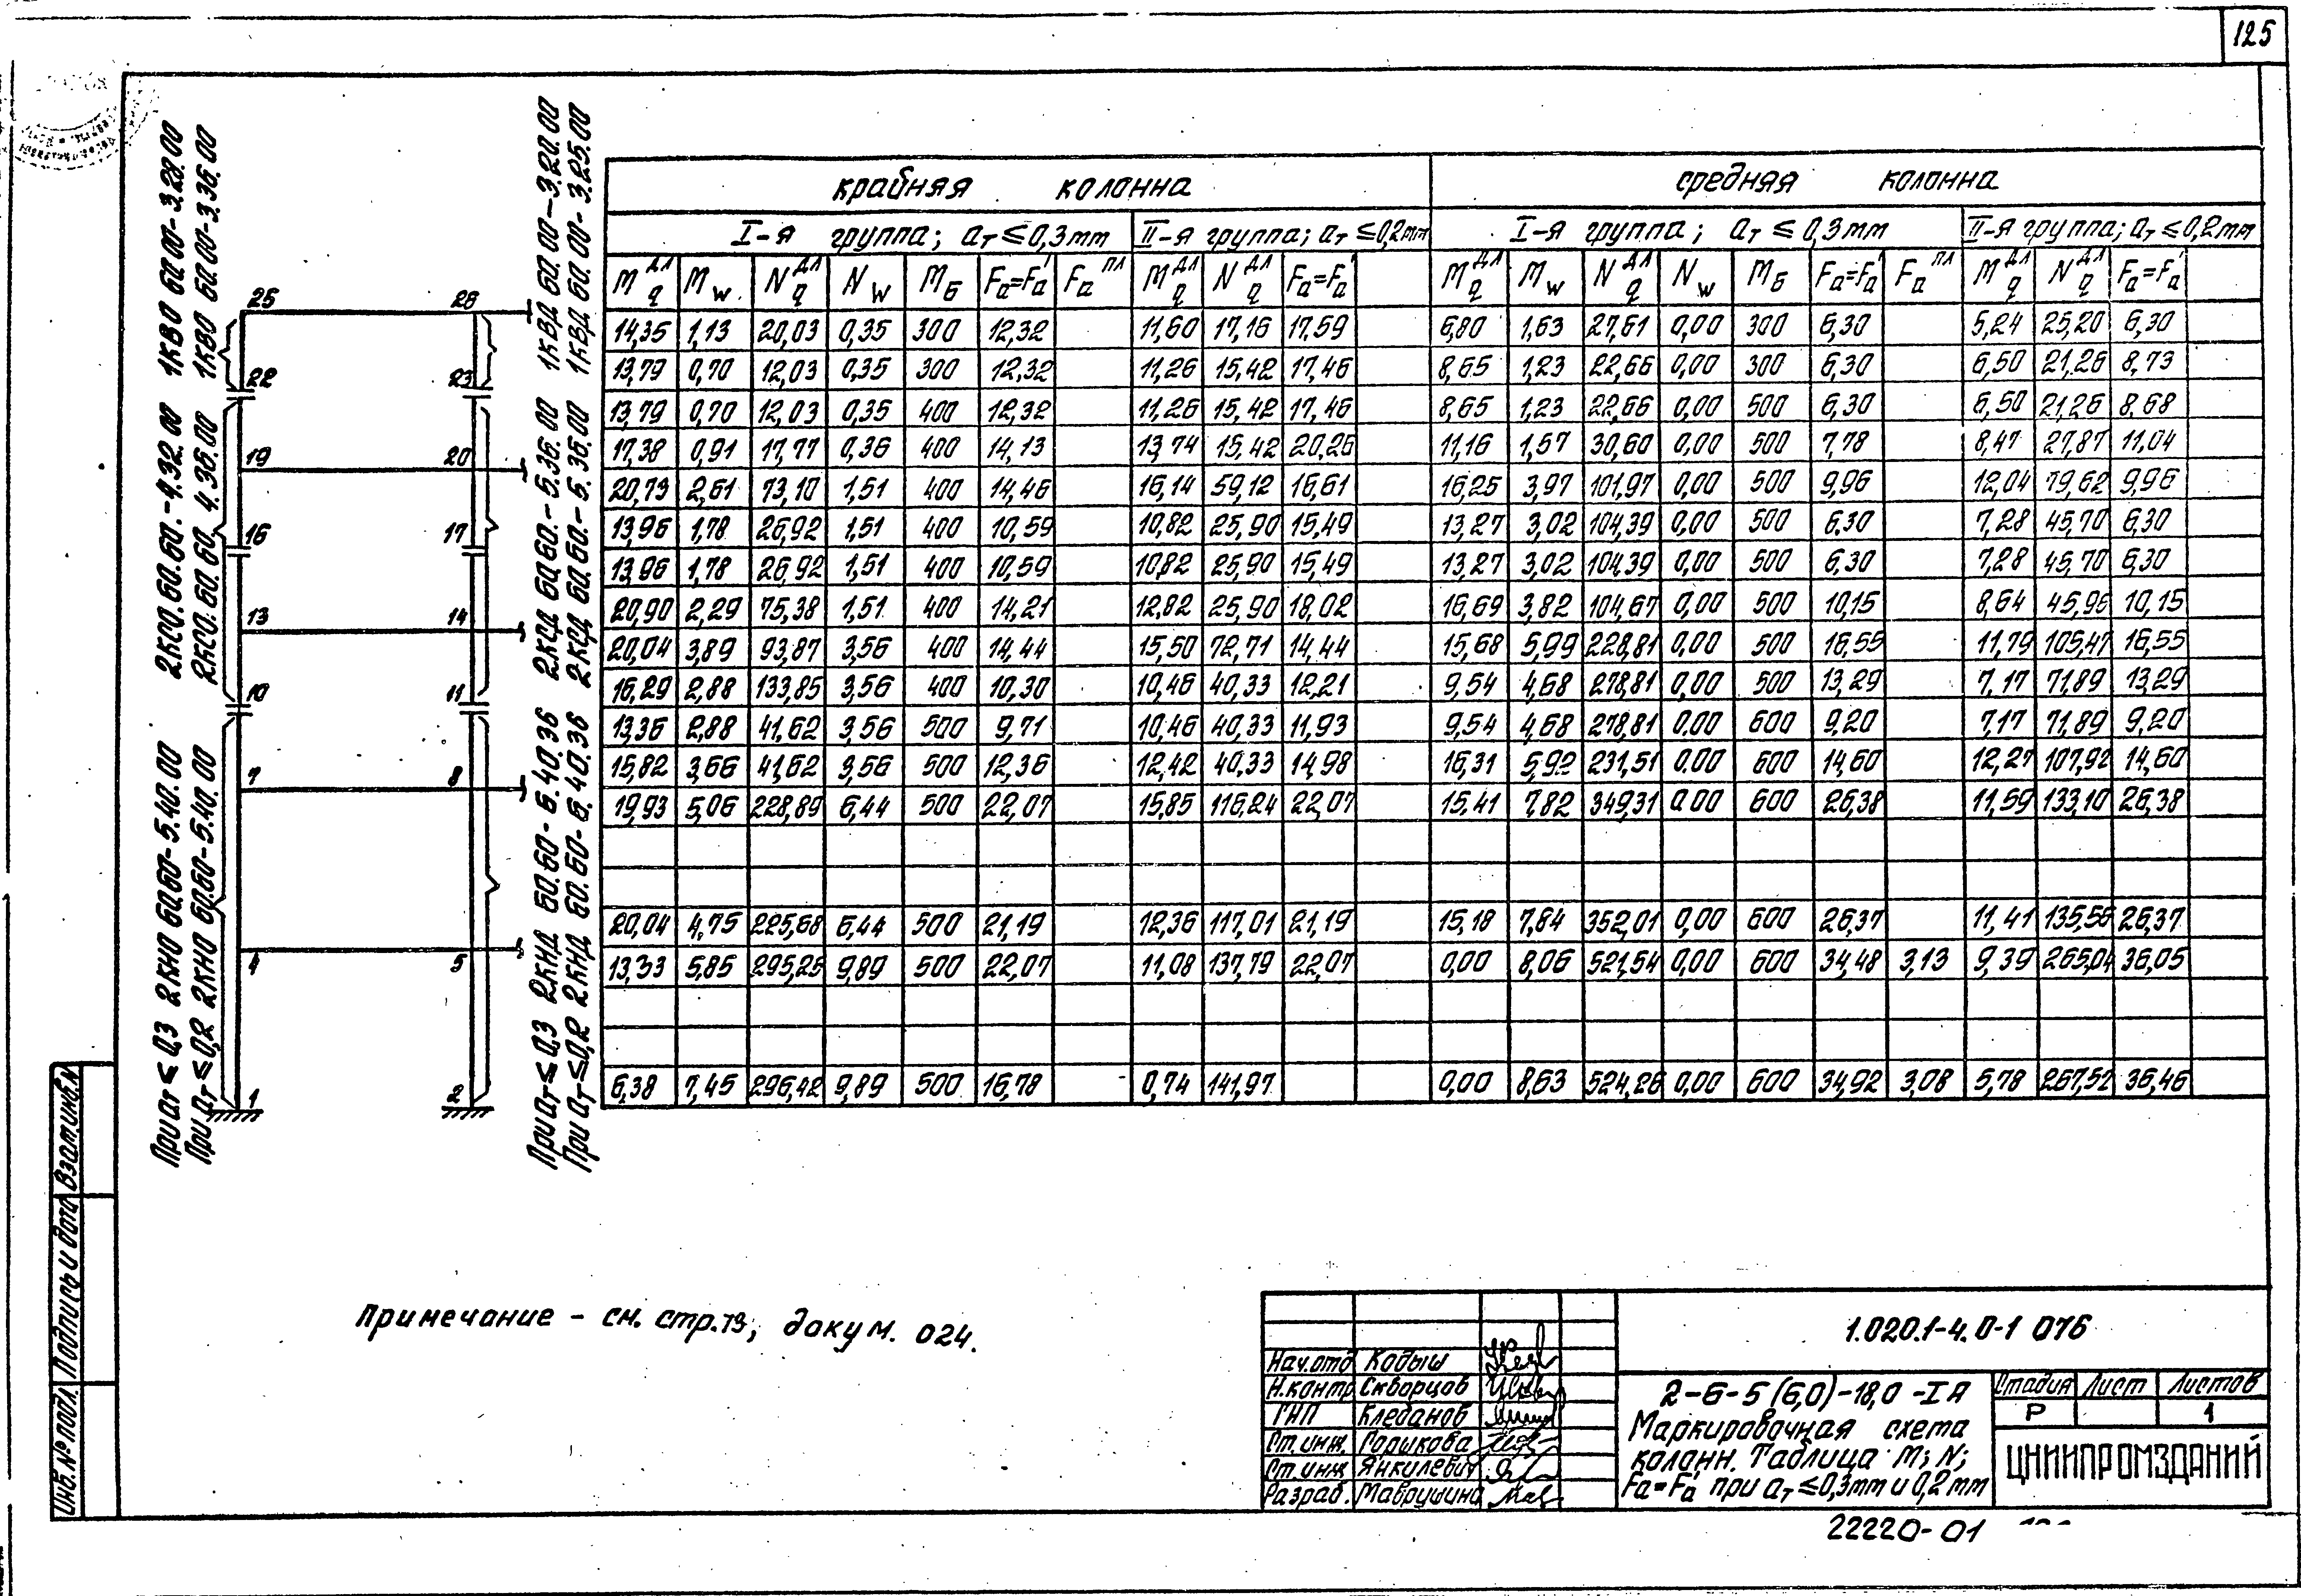 125
При aт ≤ 0,3 2КНО 60.60-5.40.00 2КСО.60.60.60.-4.32.00 1КВО 60.00-3.28.00
При aт ≤ 0,2 2КНО 60.60-5.40.00 2КСО.60.60.60. 4.36.00 1КВО 60.00-3.36.00
При aт ≤ 0,3 2КНД 60.60-6.40.36 2КСД 60.60.-5.36.00 1КВД 60.00-3.20.00
При aт ≤ 0,2 2КНД 60.60-6.40.36 2КСД 60.60.-5.36.00 1КВД 60.00-3.25.00
25 26
22 23
19 20
16 17
13 14
10 11
7 8
4 5
1 2
крайняя колонна средняя колонна
I-я группа; aт ≤ 0,3mm II-я группа; aт ≤ 0,2mm I-я группа; aт ≤ 0,3mm II-я группа; aт ≤ 0,2mm
Mqдл Mw Nqдл Nw Mб Fa=Fa' Faпл Mqдл Nqдл Fa=Fa' Mqдл Mw Nqдл Nw Mб Fa=Fa' Faпл Mqдл Nqдл Fa=Fa'
14,35 1,13 20,03 0,35 300 12,32 11,60 17,16 17,59 6,80 1,63 27,61 0,00 300 6,30 5,24 25,20 6,30
13,79 0,70 12,03 0,35 300 12,32 11,26 15,42 17,46 8,65 1,23 22,66 0,00 300 6,30 6,50 21,26 8,73
13,79 0,70 12,03 0,35 400 12,32 11,26 15,42 17,46 8,65 1,23 22,66 0,00 500 6,30 6,50 21,26 8,68
17,38 0,91 17,77 0,36 400 14,13 13,74 15,42 20,26 11,16 1,57 30,60 0,00 500 7,78 8,47 27,87 11,04
20,73 2,61 73,10 1,51 400 14,46 16,14 59,12 16,61 16,25 3,97 101,97 0,00 500 9,96 12,04 79,62 9,96
13,96 1,78 26,92 1,51 400 10,59 10,82 25,90 15,49 13,27 3,02 104,39 0,00 500 6,30 7,28 45,70 6,30
13,96 1,78 26,92 1,51 400 10,59 10,82 25,90 15,49 13,27 3,02 104,39 0,00 500 6,30 7,28 45,70 6,30
20,90 2,29 75,38 1,51 400 14,21 12,82 25,90 18,02 16,69 3,82 104,67 0,00 500 10,15 8,64 45,96 10,15
20,04 3,89 93,87 3,56 400 14,44 15,50 72,71 14,44 15,68 5,99 228,81 0,00 500 16,55 11,79 105,47 16,55
16,29 2,88 133,85 3,56 400 10,30 10,46 40,33 12,21 9,54 4,68 278,81 0,00 500 13,29 7,17 71,89 13,29
13,36 2,88 41,62 3,56 500 9,71 10,46 40,33 11,93 9,54 4,68 278,81 0,00 600 9,20 7,17 71,89 9,20
15,82 3,66 41,62 3,56 500 12,36 12,42 40,33 14,98 16,31 5,92 231,51 0,00 600 14,60 12,27 107,92 14,60
19,93 5,06 228,89 6,44 500 22,07 15,85 116,24 22,07 15,41 7,82 349,31 0,00 600 26,38 11,59 133,10 26,38
20,04 4,75 225,68 6,44 500 21,19 12,36 117,01 21,19 15,18 7,84 352,01 0,00 600 26,37 11,41 135,56 26,37
13,33 5,85 295,25 9,89 500 22,07 11,08 137,79 22,07 0,00 8,06 521,54 0,00 600 34,48 3,13 9,39 265,04 36,05
6,38 7,45 296,42 9,89 500 16,78 0,74 141,97 0,00 8,63 524,26 0,00 600 34,92 3,08 5,78 267,52 36,46
Примечание - см. стр.73, докум. 024.
1.020.1-4.0-1 076
Нач.отд Кодыш
Н.контр Скворцов
ГИП Клебанов
Ст.инж. Горшкова
Ст.инж Янкилевич
Разраб. Маврушина
2-6-5(6,0)-18,0-IA
Маркировочная схема
колонн. Таблица M; N;
Fa=Fa' при aт ≤ 0,3mm и 0,2mm
Стадия Лист Листов
Р 1
ЦНИИПРОМЗДАНИЙ
Инв.№ подл. Подпись и дата Взам.инв.N
22220-01